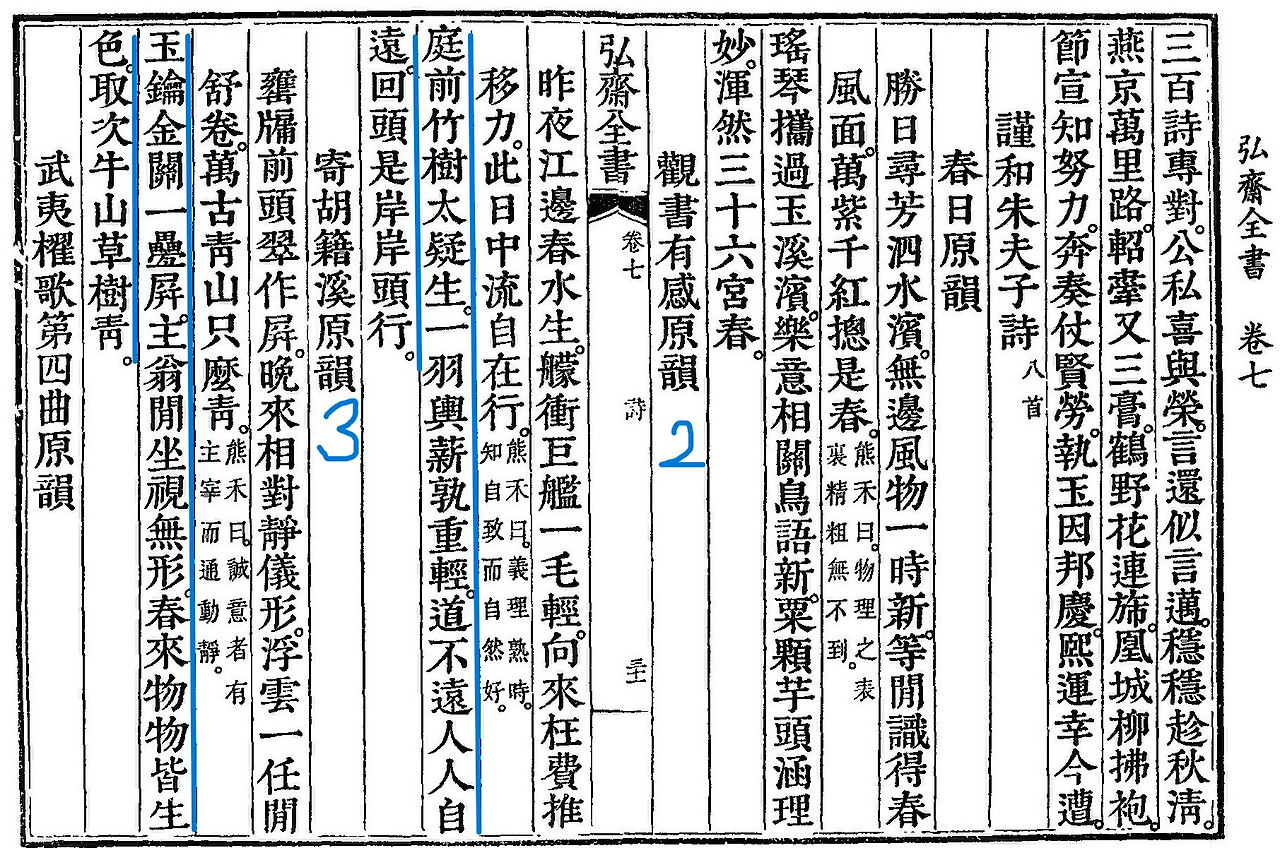 弘齋全書 卷七
三百詩專對。公私喜與榮。言還似言邁。穩穩趁秋淸。
燕京萬里路。軺鞾又三膏。鶴野花連斾。凰城柳拂袍。
節宣知努力。奔奏仗賢勞。執玉因邦慶。熙運幸今遭。
謹和朱夫子詩 八首
春日原韻
勝日尋芳泗水濱。無邊風物一時新。等閒識得春
風面。萬紫千紅摠是春。熊禾曰。物理之表
裏精粗無不到。
瑤琴攜過玉溪濱。樂意相關鳥語新。粟顆芋頭涵理
妙。渾然三十六宮春。
觀書有感原韻
2
弘齋全書 卷七 詩 三十二
昨夜江邊春水生。艨衝巨艦一毛輕。向來枉費推
移力。此日中流自在行。熊禾曰。義理熟時。
知自致而自然好。
庭前竹樹太疑生。一羽輿薪孰重輕。道不遠人人自
遠。回頭是岸岸頭行。
寄胡籍溪原韻
3
甕牖前頭翠作屛。晩來相對靜儀形。浮雲一任閒
舒卷。萬古靑山只麽靑。熊禾曰。誠意者有
主宰而通動靜。
玉鑰金關一疊屛。主翁閒坐視無形。春來物物皆生
色。取次牛山草樹靑。
武夷櫂歌第四曲原韻